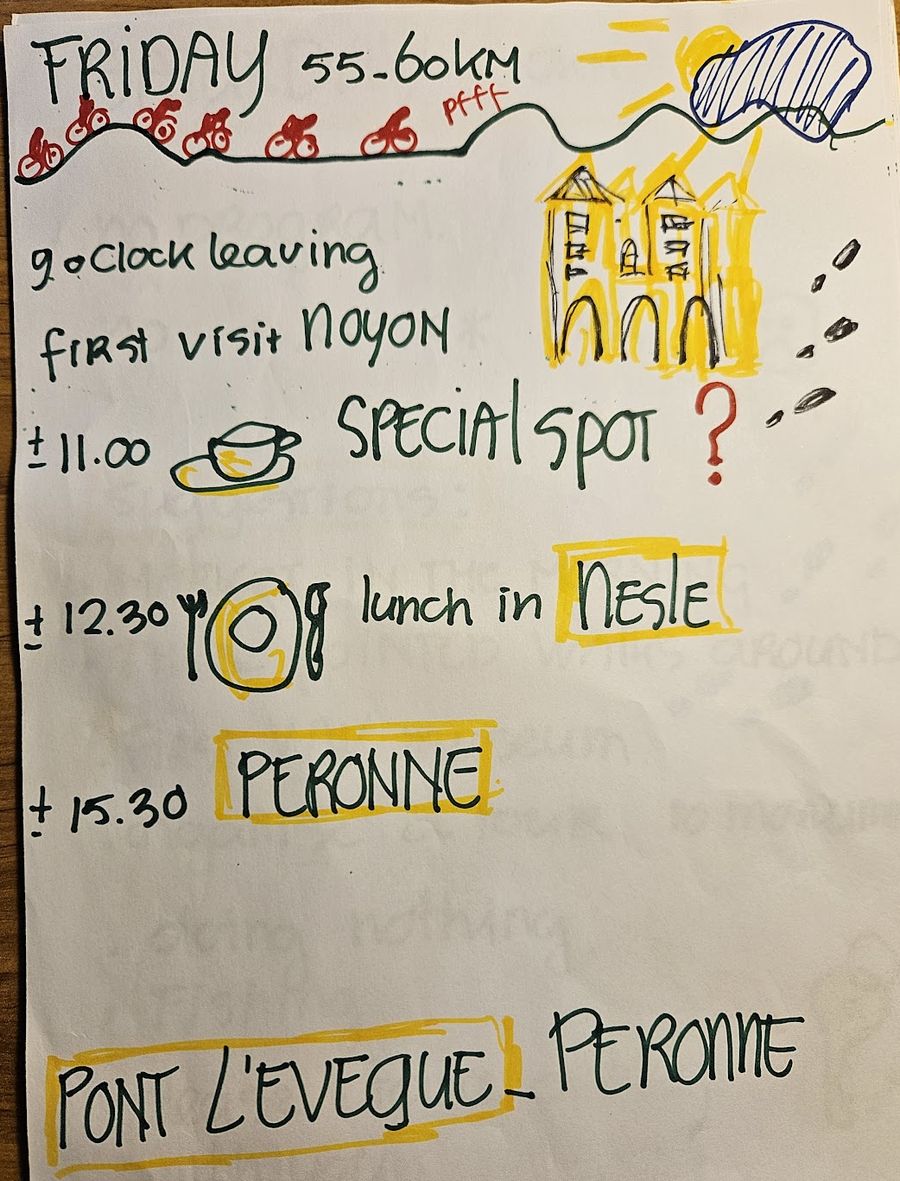 FRiDAY 55-60KM
pfff
9 oclock leaving
first visit NOYON
± 11.00 SPECIAL SPOT ?
± 12.30 lunch in NESLE
± 15.30 PERONNE
PONT L'EVEGUE - PERONNE